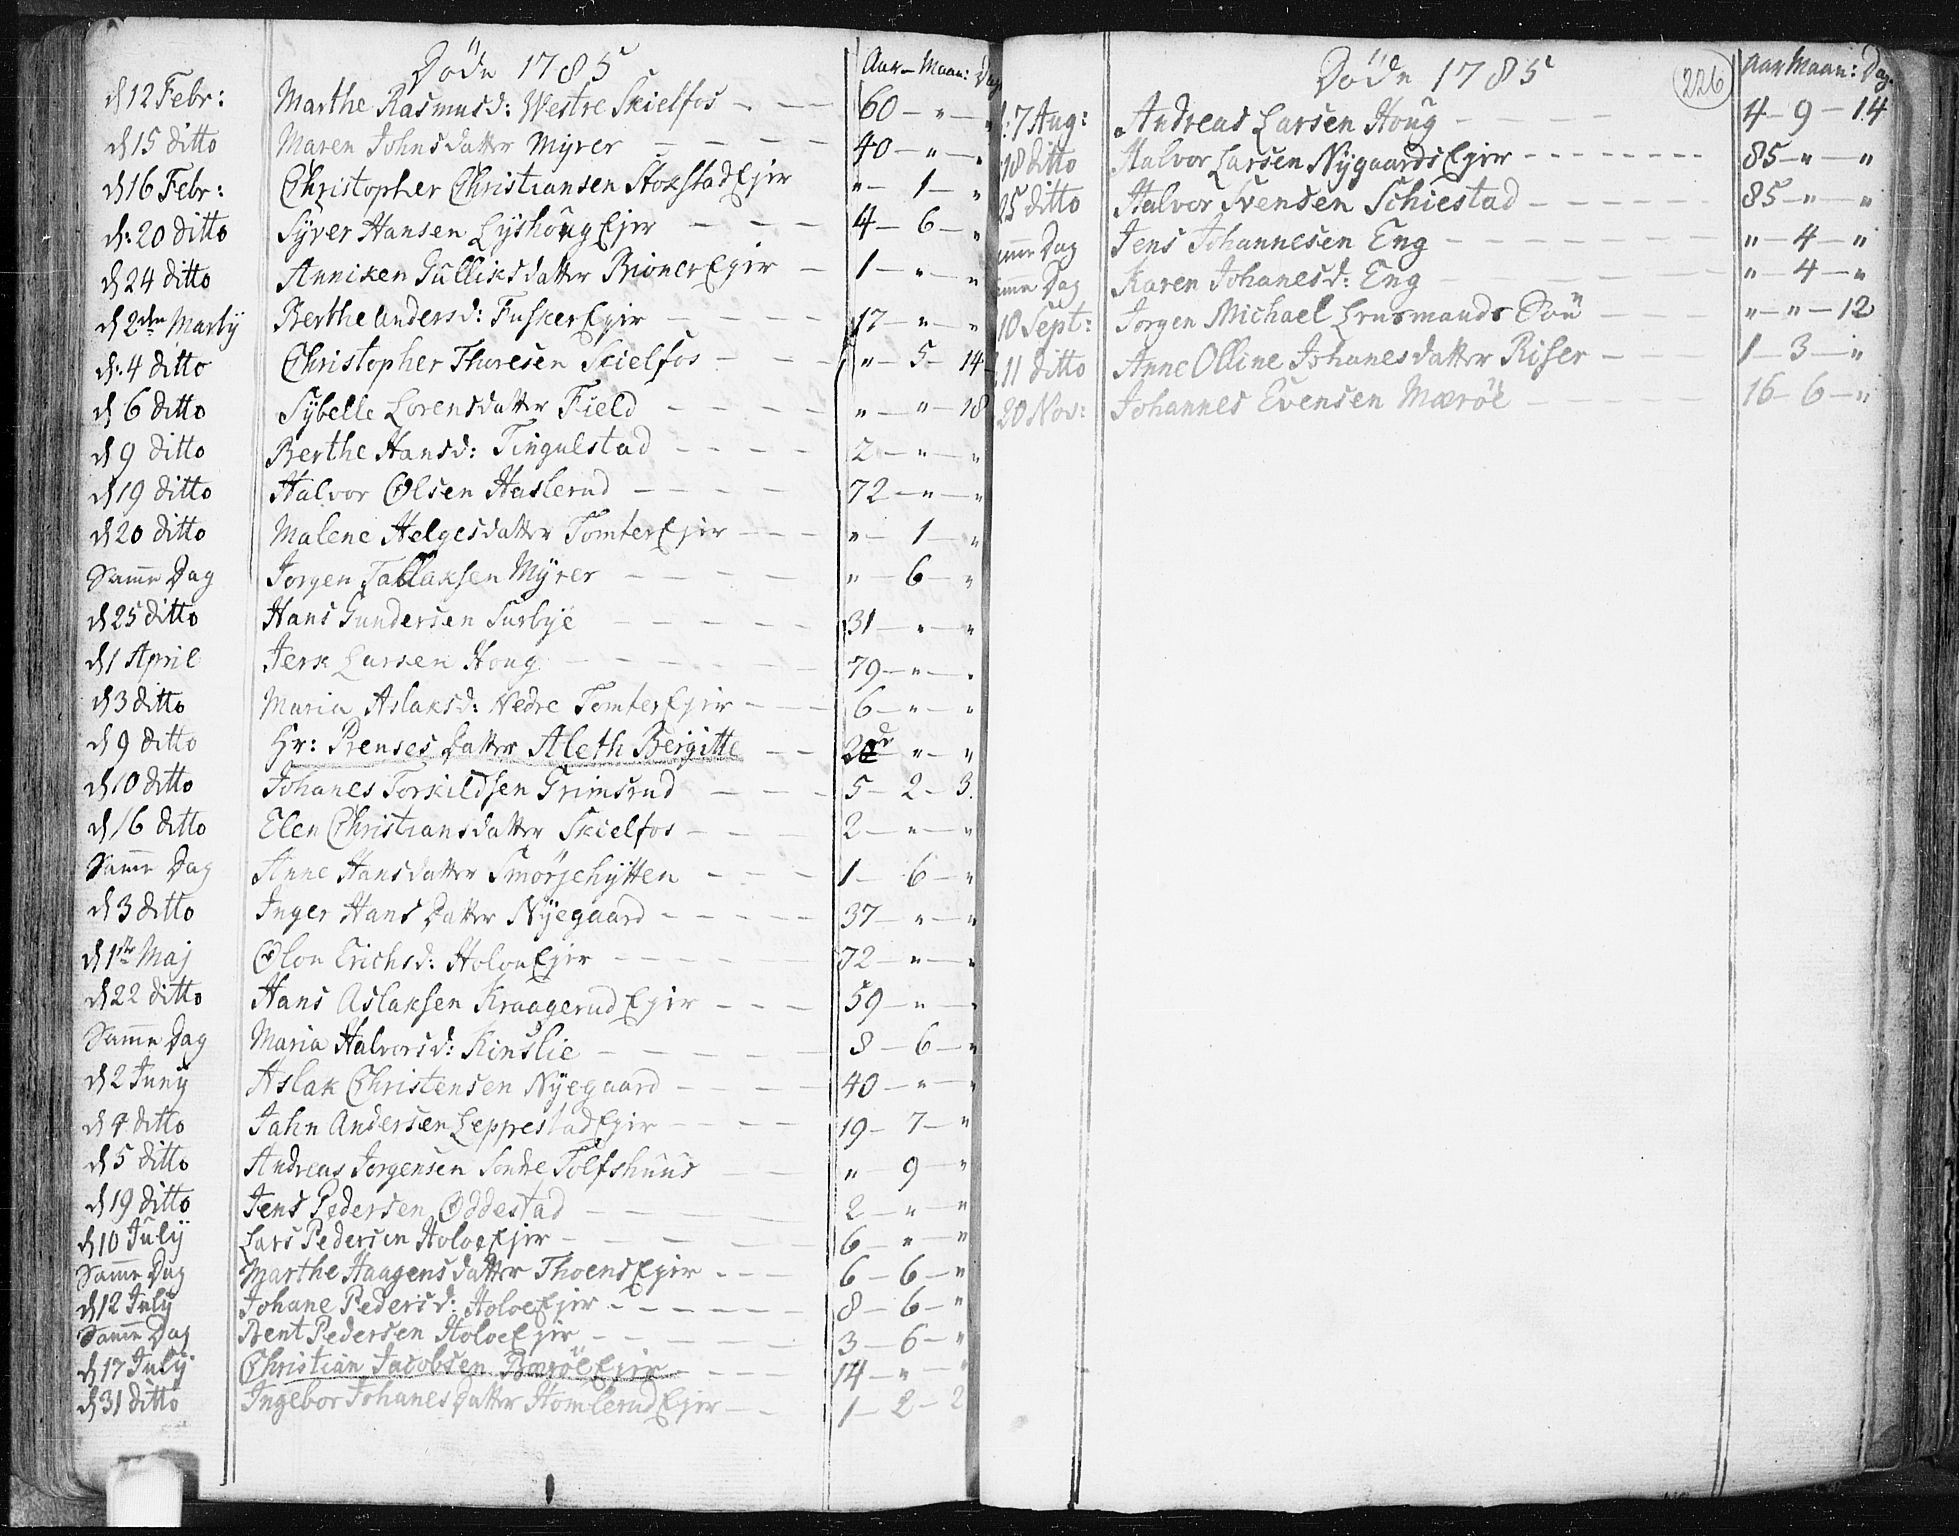 Döde 1785
Aar – Maan: Dag
d 12 Febr: Marthe Rasmusd: Westre Skielfos – – – 60 – " – "
d 15 ditto Maren Johnsdatter Myrer – – – – 40 – " – "
d 16 Febr: Christopher Christiansen StokstadEjer " – 1 – "
d: 20 ditto Syver Hansen LyshougEjer – – – 4 – 6 – "
d 24 ditto Anniken Gulliksdatter BionerEjer – 1 – " – "
d 2den Martÿ Berthe Andersd: FuskerEjer – – – – 17 – " – "
d: 4 ditto Christopher Thoresen Skielfos – – – " – 5 – 14
d 6 ditto Sybelle Lorensdatter Field – – – – " – " – 18
d 9 ditto Berthe Hansd: Tingulstad – – – – 2 – " – "
d 19 ditto Halvor Olsen Haslerud – – – – 72 – " – "
d 20 ditto Malene Helgesdatter TomterEjer – – – " – 1 – "
Samme Dag Jorgen Tallaksen Mÿrer – – – – " – 6 – "
d 25 ditto Hans Gundersen Surbÿe – – – – – 31 – " – "
d 1 April Jerk Larsen Houg – – – – – 79 – " – "
d 3 ditto Maria Aslaksd: Nedre TomterEjer – – – 6 – " – "
d 9 ditto Hr: Prenses Datter Aleth Birgitte – – " – "
d 10 ditto Johanes Torkildsen Grimsrud – – – – 5 – 2 – 3.
d 16 ditto Elen Christiansdatter Skielfos – – – 2 – " – "
Samme Dag Anne Hansdatter Smörjehÿtten – – – 1 – 6 – "
d 3 ditto Inger Hans Datter Nÿegaard – – – – – 37 – " – "
d 1ste Maj Olou Erichsd: HoloeEjer – – – – – 72 – " – "
d 22 ditto Hans Aslaksen KraagerudEjer – – – 59 – " –
Samme Dag Maria Halvorsd: Kinslie – – – – – 8 – 6 – "
d 2 Junÿ Aslak Christensen Nÿegaard – – – – 40 – " – "
d 4 ditto Jahn Andersen LeppestadEjer – – – – 19 – 7 – "
d 5 ditto Andreas Jorgensen Söndre Tolfshuus – " 9 – "
d 19 ditto Jens Pedersen Oddestad – – – – 2 – " – "
d 10 Julÿ Lars Pedersen HoloeEjer – – – – – 6 – " – "
Samme Dag Marthe Haagensdatter ThoensEjer – – – 6 – 6 – "
d 12 July Johane Pedersd: HoloeEjer – – – – – – 8 – 6 – "
Samme Dag Bent Pedersen HoloeEjer – – – – – 3 – 6 – "
d 17 July Christian Jacobsen BæröeEjer – – – – 14 – " – "
d 31 ditto Ingebor Johanes Datter HomlerudEjer – – 1 – 2 – 2
Döde 1785
226
Aar Maan: Dag.
: 7 Aug: Andreas Larsen Houg – – – – 4 – 9 – 14
18 ditto Halvor Larsen NÿgaardsEjer – – – – – – – 85 – " – "
25 ditto Halvor Svensen Schiestad – – – – – – 85 – " – "
mme Dag Jens Johannesen Eng – – – – – – – – " – 4 – "
mme Dag Karen Johanesd: Eng – – – – – – " – 4 – "
10 Sept: Jorgen Michael Lensmands Sön – – – – " – " – 12
11 ditto Anne Olline Johanesdatter Riser – – – – 1 – 3 – "
20 Nov: Johannes Evensen Mæröe – – – – – 16 – 6 – "